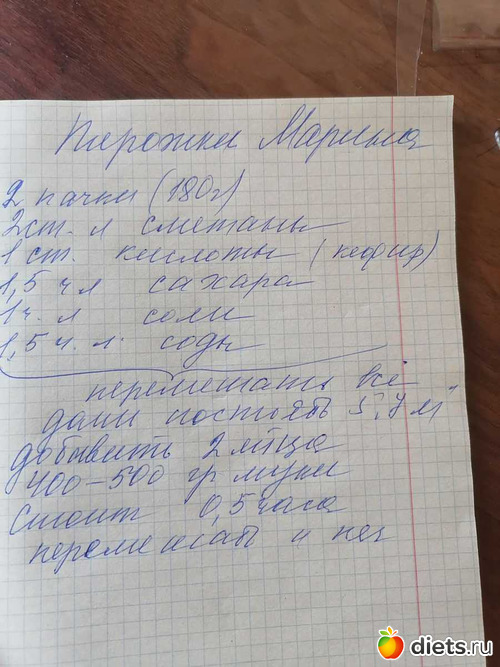 Пирожки Марина
2 пачки (180г)
2ст. л сметаны
1 ст. кислоты (кефир)
1,5 ч л сахара
1ч. л соли
1,5 ч. л. соды
перемешать всё
дать постоять 5,7 м
добавить 2 яйца
400-500 гр муки
Стоит 0,5 часа
перемешать и печ
diets.ru